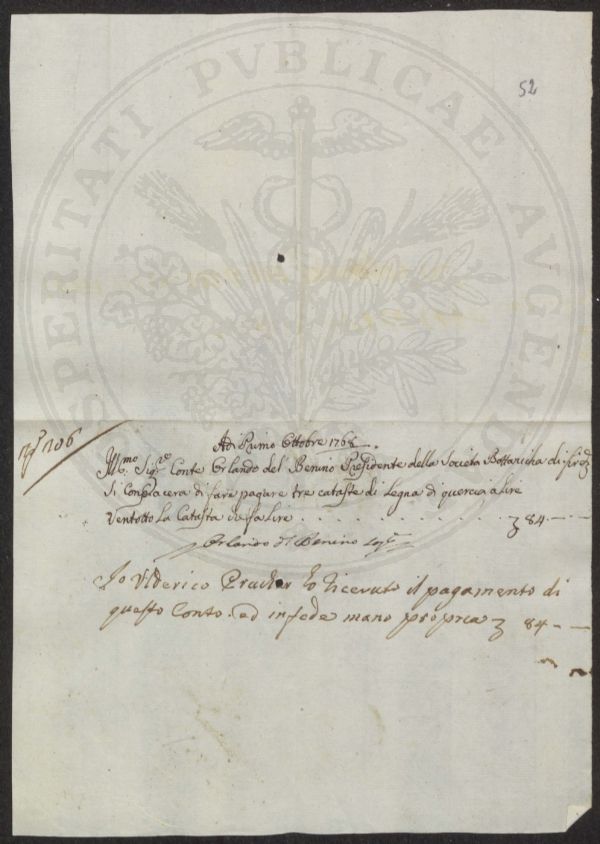 PROSPERITATI PVBLICAE AVGENDAE
52
N° 206
Adi Primo Ottobre 1768
Ill:mo Sig:re Conte Orlando del Benino Presidente della Societa Bottanicha di
Si Conpiacera di fare pagare tre cataste di Legna di quercia a Lire
Ventotto La Catasta che fa Lire . . . . . . . . . . . 84 — —
Orlando del Benino
Io Vlderico Prucker ho riceuuto il pagamento di
questo Conto. ed in fede mano propria 84 — —